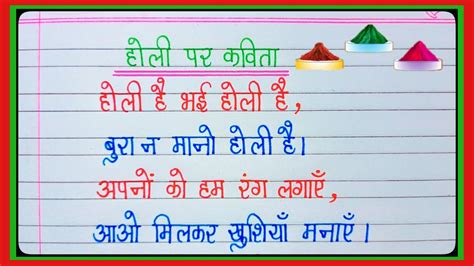 होली पर कविता
होली है भई होली है,
बुरा न मानो होली है।
अपनों को हम रंग लगाएँ,
आओ मिलकर खुशियाँ मनाएँ।